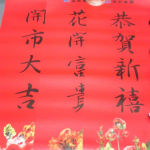 恭賀新禧
花開富貴
開市大吉